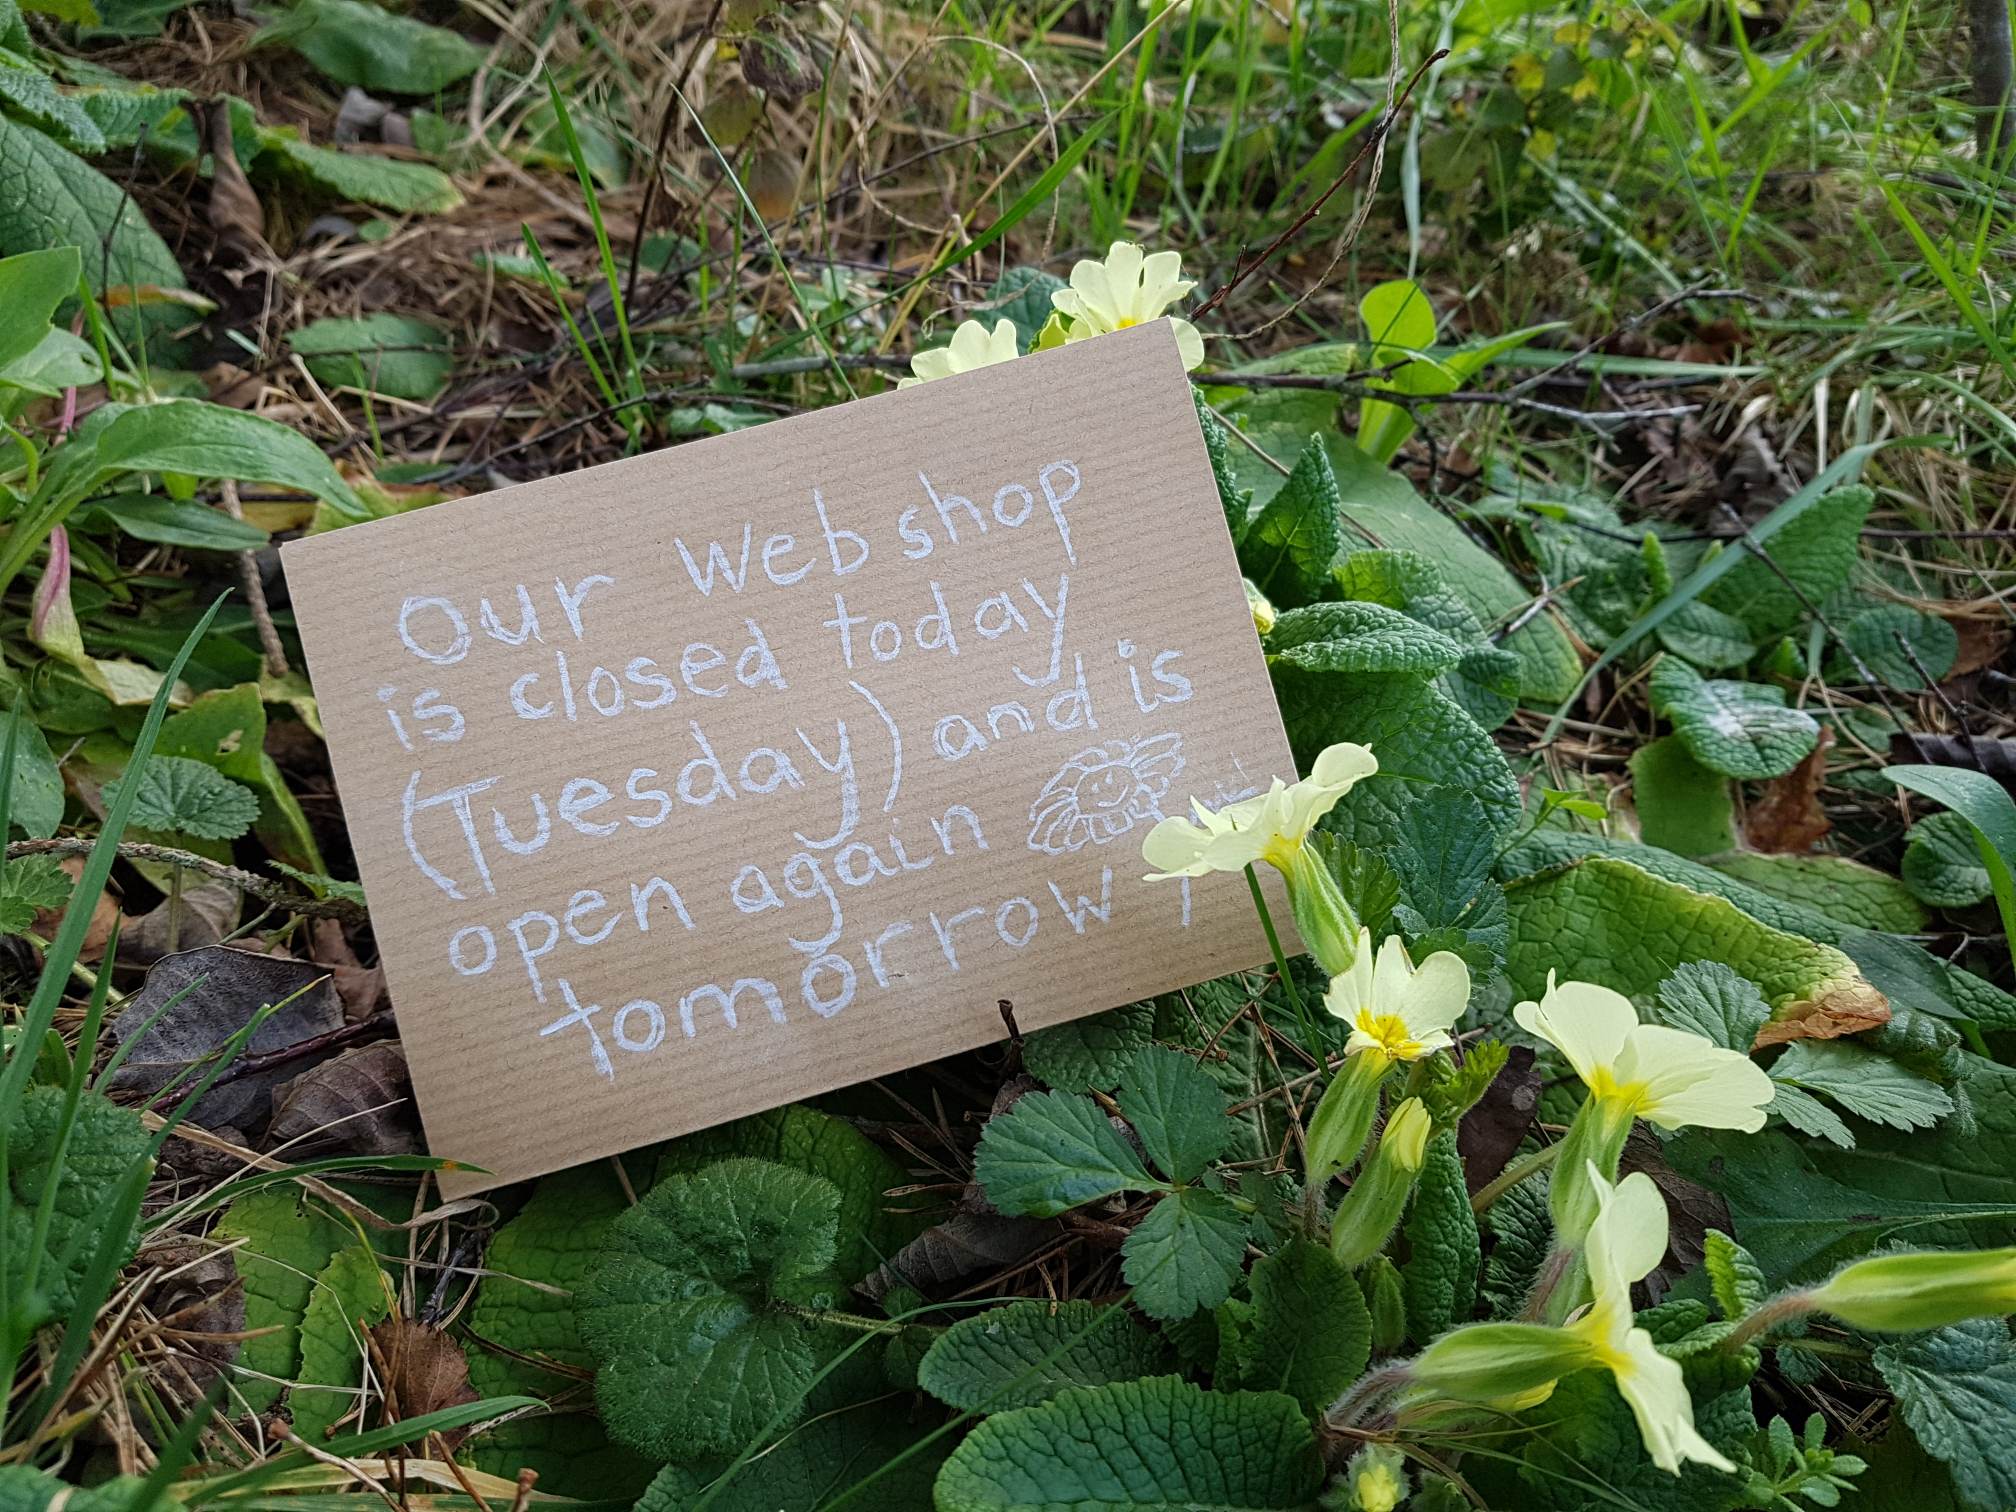 Our Webshop
is closed today
(Tuesday) and is
open again
tomorrow